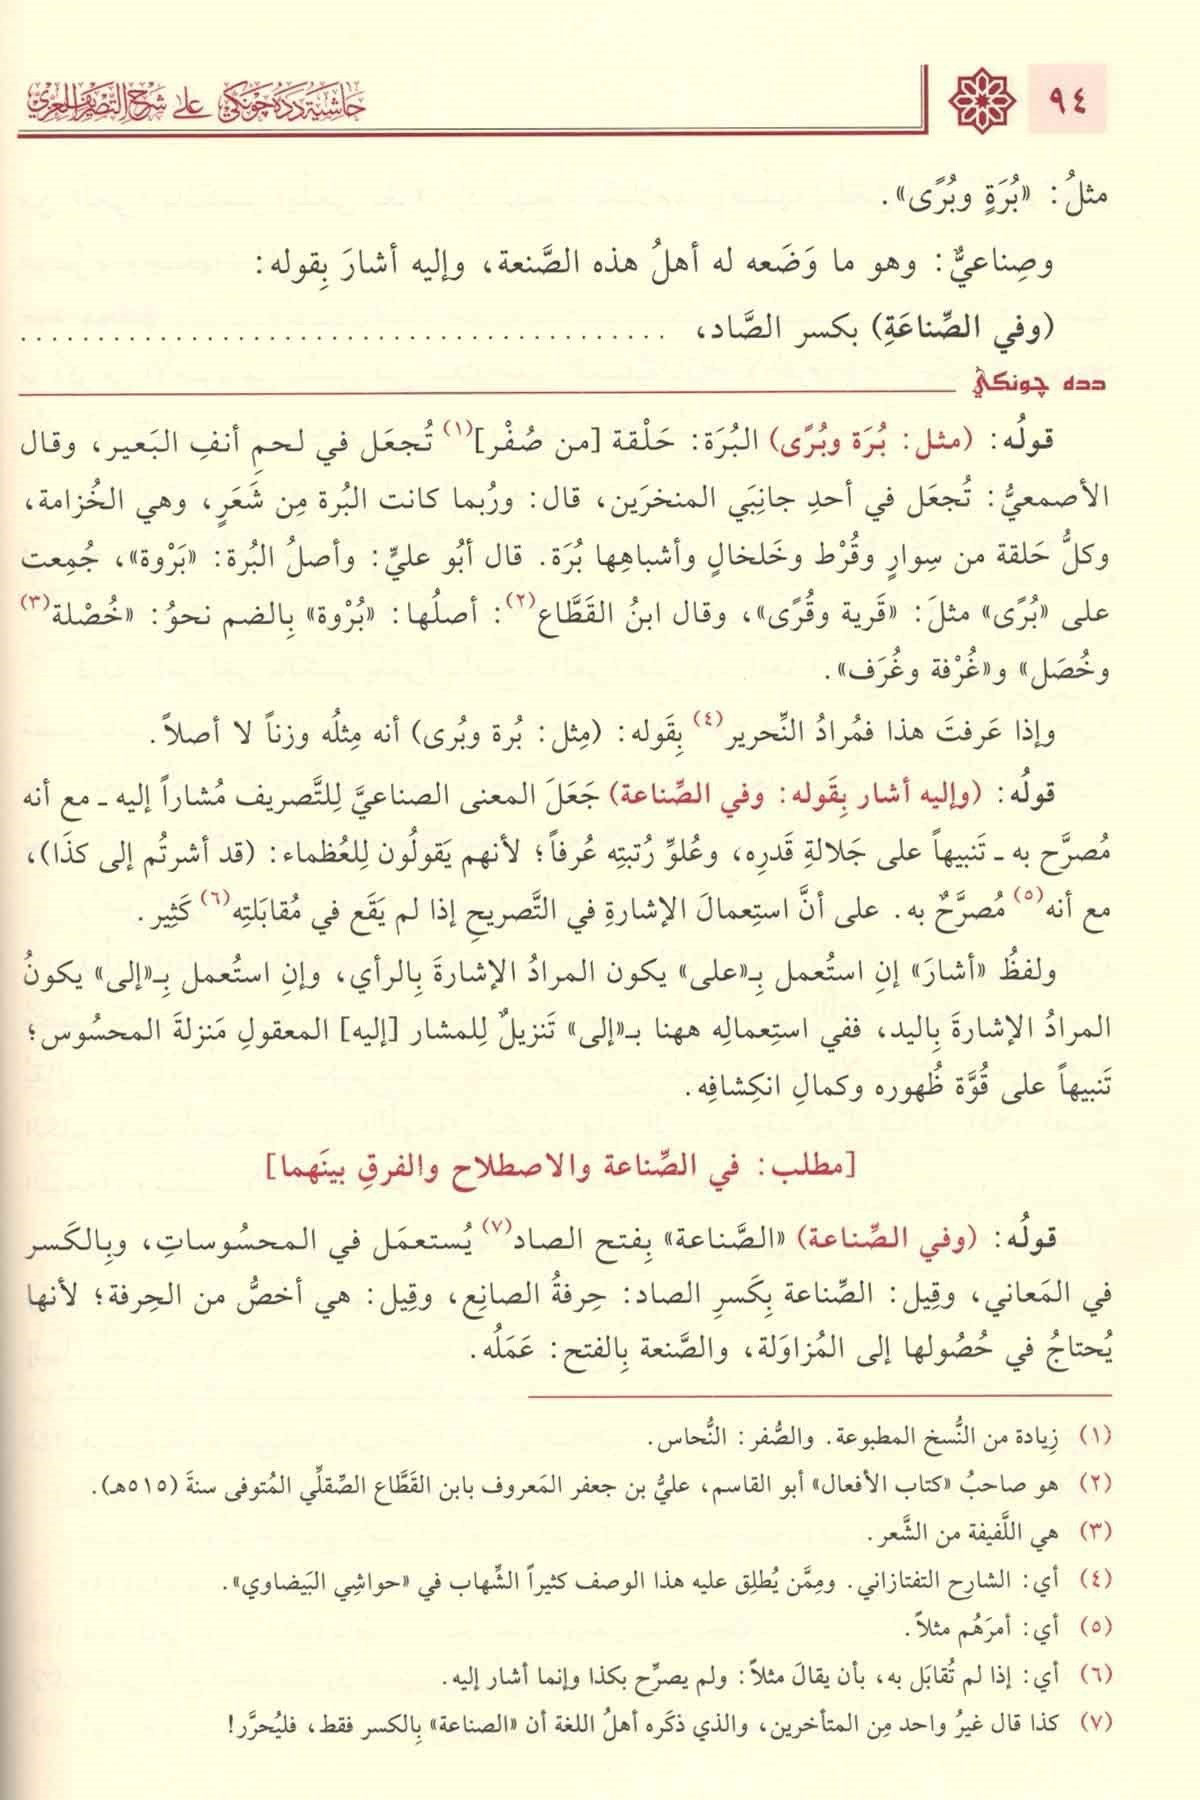 ٩٤
حاشية دده جونكي على شرح التصريف العزي
مثلُ: «بُرَةٍ وبُرًى».
وصِناعيٌّ: وهو ما وَضَعه له أهلُ هذه الصَّنعة، وإليه أشارَ بِقوله:
(وفي الصِّناعَةِ) بكسر الصَّاد، ........................................
دده چونكي
قولُه: (مثل: بُرَة وبُرًى) البُرَة: حَلْقة [من صُفْر](١) تُجعَل في لحمِ أنفِ البَعير، وقال
الأصمعيُّ: تُجعَل في أحدِ جانِبَي المنخرَين، قال: ورُبما كانت البُرة مِن شَعَرٍ، وهي الخُزامة،
وكلُّ حَلقة من سِوارٍ وقُرْط وخَلخالٍ وأشباهِها بُرَة. قال أبُو عليٍّ: وأصلُ البُرة: «بَرْوة»، جُمِعت
على «بُرًى» مثلَ: «قَرية وقُرًى»، وقال ابنُ القَطَّاع(٢): أصلُها: «بُرْوة» بِالضم نحوُ: «خُصْلة(٣)
وخُصَل» و«غُرْفة وغُرَف».
وإذا عَرفتَ هذا فمُرادُ النِّحرير(٤) بِقَوله: (مِثل: بُرة وبُرى) أنه مِثلُه وزناً لا أصلاً.
قولُه: (وإليه أشار بِقَوله: وفي الصِّناعة) جَعَلَ المعنى الصناعيَّ لِلتَّصريف مُشاراً إليه ـ مع أنه
مُصرَّح به ـ تَنبيهاً على جَلالةِ قَدرِه، وعُلوِّ رُتبتِه عُرفاً؛ لأنهم يَقولُون لِلعُظماء: (قد أشرتُم إلى كذَا)،
مع أنه(٥) مُصرَّحٌ به. على أنَّ استِعمالَ الإشارةِ في التَّصريحِ إذا لم يَقَع في مُقابَلتِه(٦) كَثِير.
ولفظُ «أشارَ» إنِ استُعمل بِـ«على» يكون المرادُ الإشارةَ بِالرأي، وإنِ استُعمل بِـ«إلى» يكونُ
المرادُ الإشارةَ بِاليد، ففي استِعمالِه ههنا بـ«إلى» تَنزيلٌ لِلمشار [إليه] المعقولِ مَنزلةَ المحسُوس؛
تَنبيهاً على قُوَّة ظُهوره وكمالِ انكِشافِه.
[مطلب: في الصِّناعة والاصطلاح والفرقِ بينَهما]
قولُه: (وفي الصِّناعة) «الصَّناعة» بِفتح الصاد(٧) يُستعمَل في المحسُوساتِ، وبِالكَسر
في المَعاني، وقِيل: الصِّناعة بِكَسرِ الصاد: حِرفةُ الصانِع، وقِيل: هي أخصُّ من الحِرفة؛ لأنها
يُحتاجُ في حُصُولها إلى المُزاوَلة، والصَّنعة بِالفتح: عَمَلُه.
(١) زِيادة من النُّسخ المطبوعة. والصُّفر: النُّحاس.
(٢) هو صاحبُ «كتاب الأفعال» أبو القاسم، عليُّ بن جعفر المَعروف بابن القَطَّاع الصِّقلِّي المُتوفى سنةَ (٥١٥هـ).
(٣) هي اللَّفيفة من الشَّعر.
(٤) أي: الشارِح التفتازاني. ومِمَّن يُطلِق عليه هذا الوصف كثيراً الشِّهاب في «حواشِي البَيضاوي».
(٥) أي: أمرَهُم مثلاً.
(٦) أي: إذا لم تُقابَل به، بأن يقالَ مثلاً: ولم يصرِّح بكذا وإنما أشار إليه.
(٧) كذا قال غيرُ واحد مِن المتأخرين، والذي ذكَره أهلُ اللغة أن «الصناعة» بِالكسر فقط، فليُحرَّر!